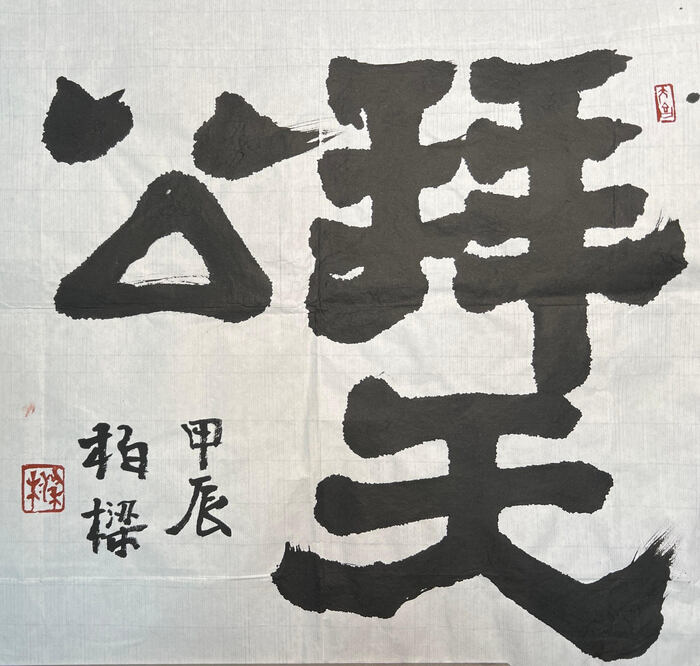 拜天
公
甲辰
柏樑